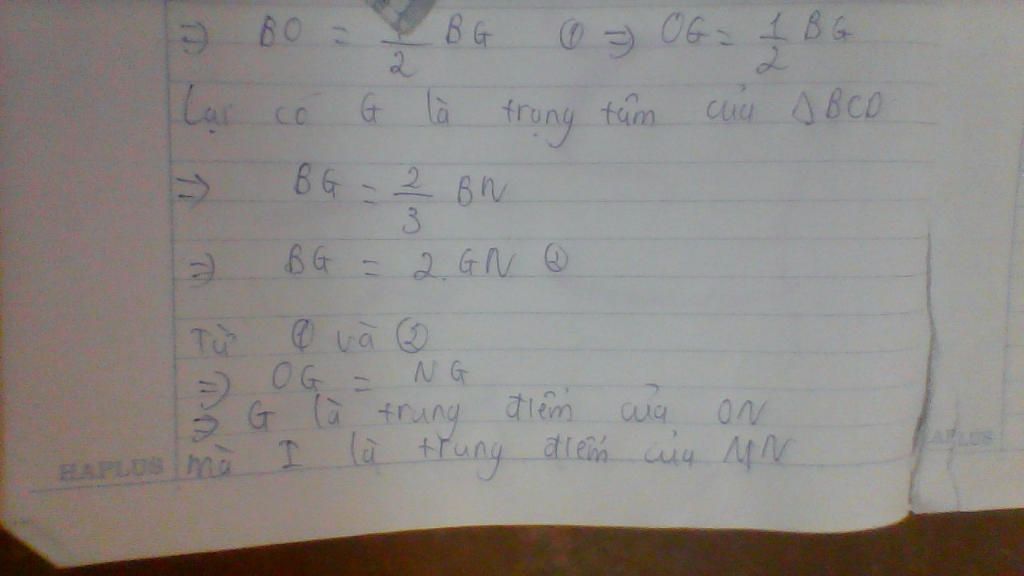 => BO = 1/2 BG ① => OG = 1/2 BG
Lại có G là trọng tâm của ΔBCD
=> BG = 2/3 BN
=> BG = 2.GN ②
Từ ① và ②
=> OG = NG
=> G là trung điểm của ON
mà I là trung điểm của MN
HAPLUS
HAPLUS